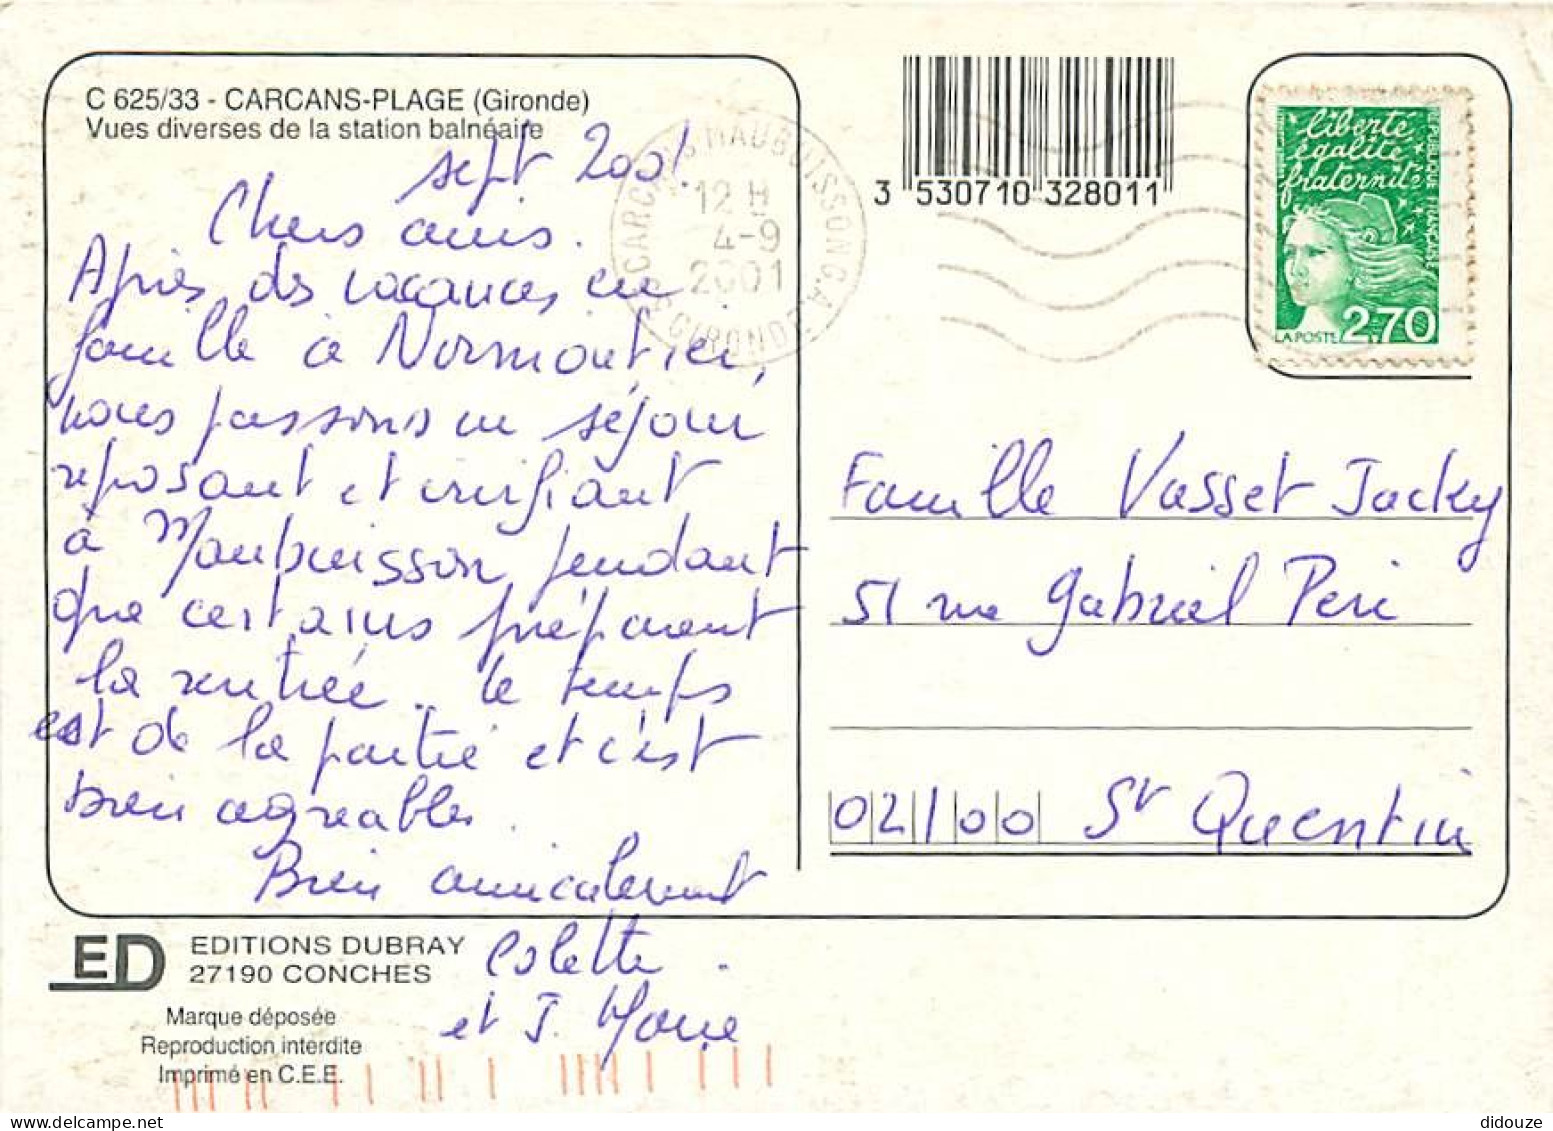 C 625/33 - CARCANS-PLAGE (Gironde)
Vues diverses de la station balnéaire
sept 2001.
Chers amis.
Après des vacances en
famille à Noirmoutier,
nous passons un séjour
reposant et vivifiant
à Maubuisson pendant
que certains préparent
la rentrée. Le temps
est de la partie et c'est
bien agréable.
Bien amicalement
Colette.
et J. Marie
ED
EDITIONS DUBRAY
27190 CONCHES
Marque déposée
Reproduction interdite
Imprimé en C.E.E.
CARCANS MAUBUISSON C.A.
12 H
4-9
2001
GIRONDE
3 530710 328011
liberté
égalité
fraternité
REPUBLIQUE FRANÇAISE
LA POSTE 2.70
Famille Vasset Jacky
51 rue Gabriel Peri
02100 St Quentin
didouze